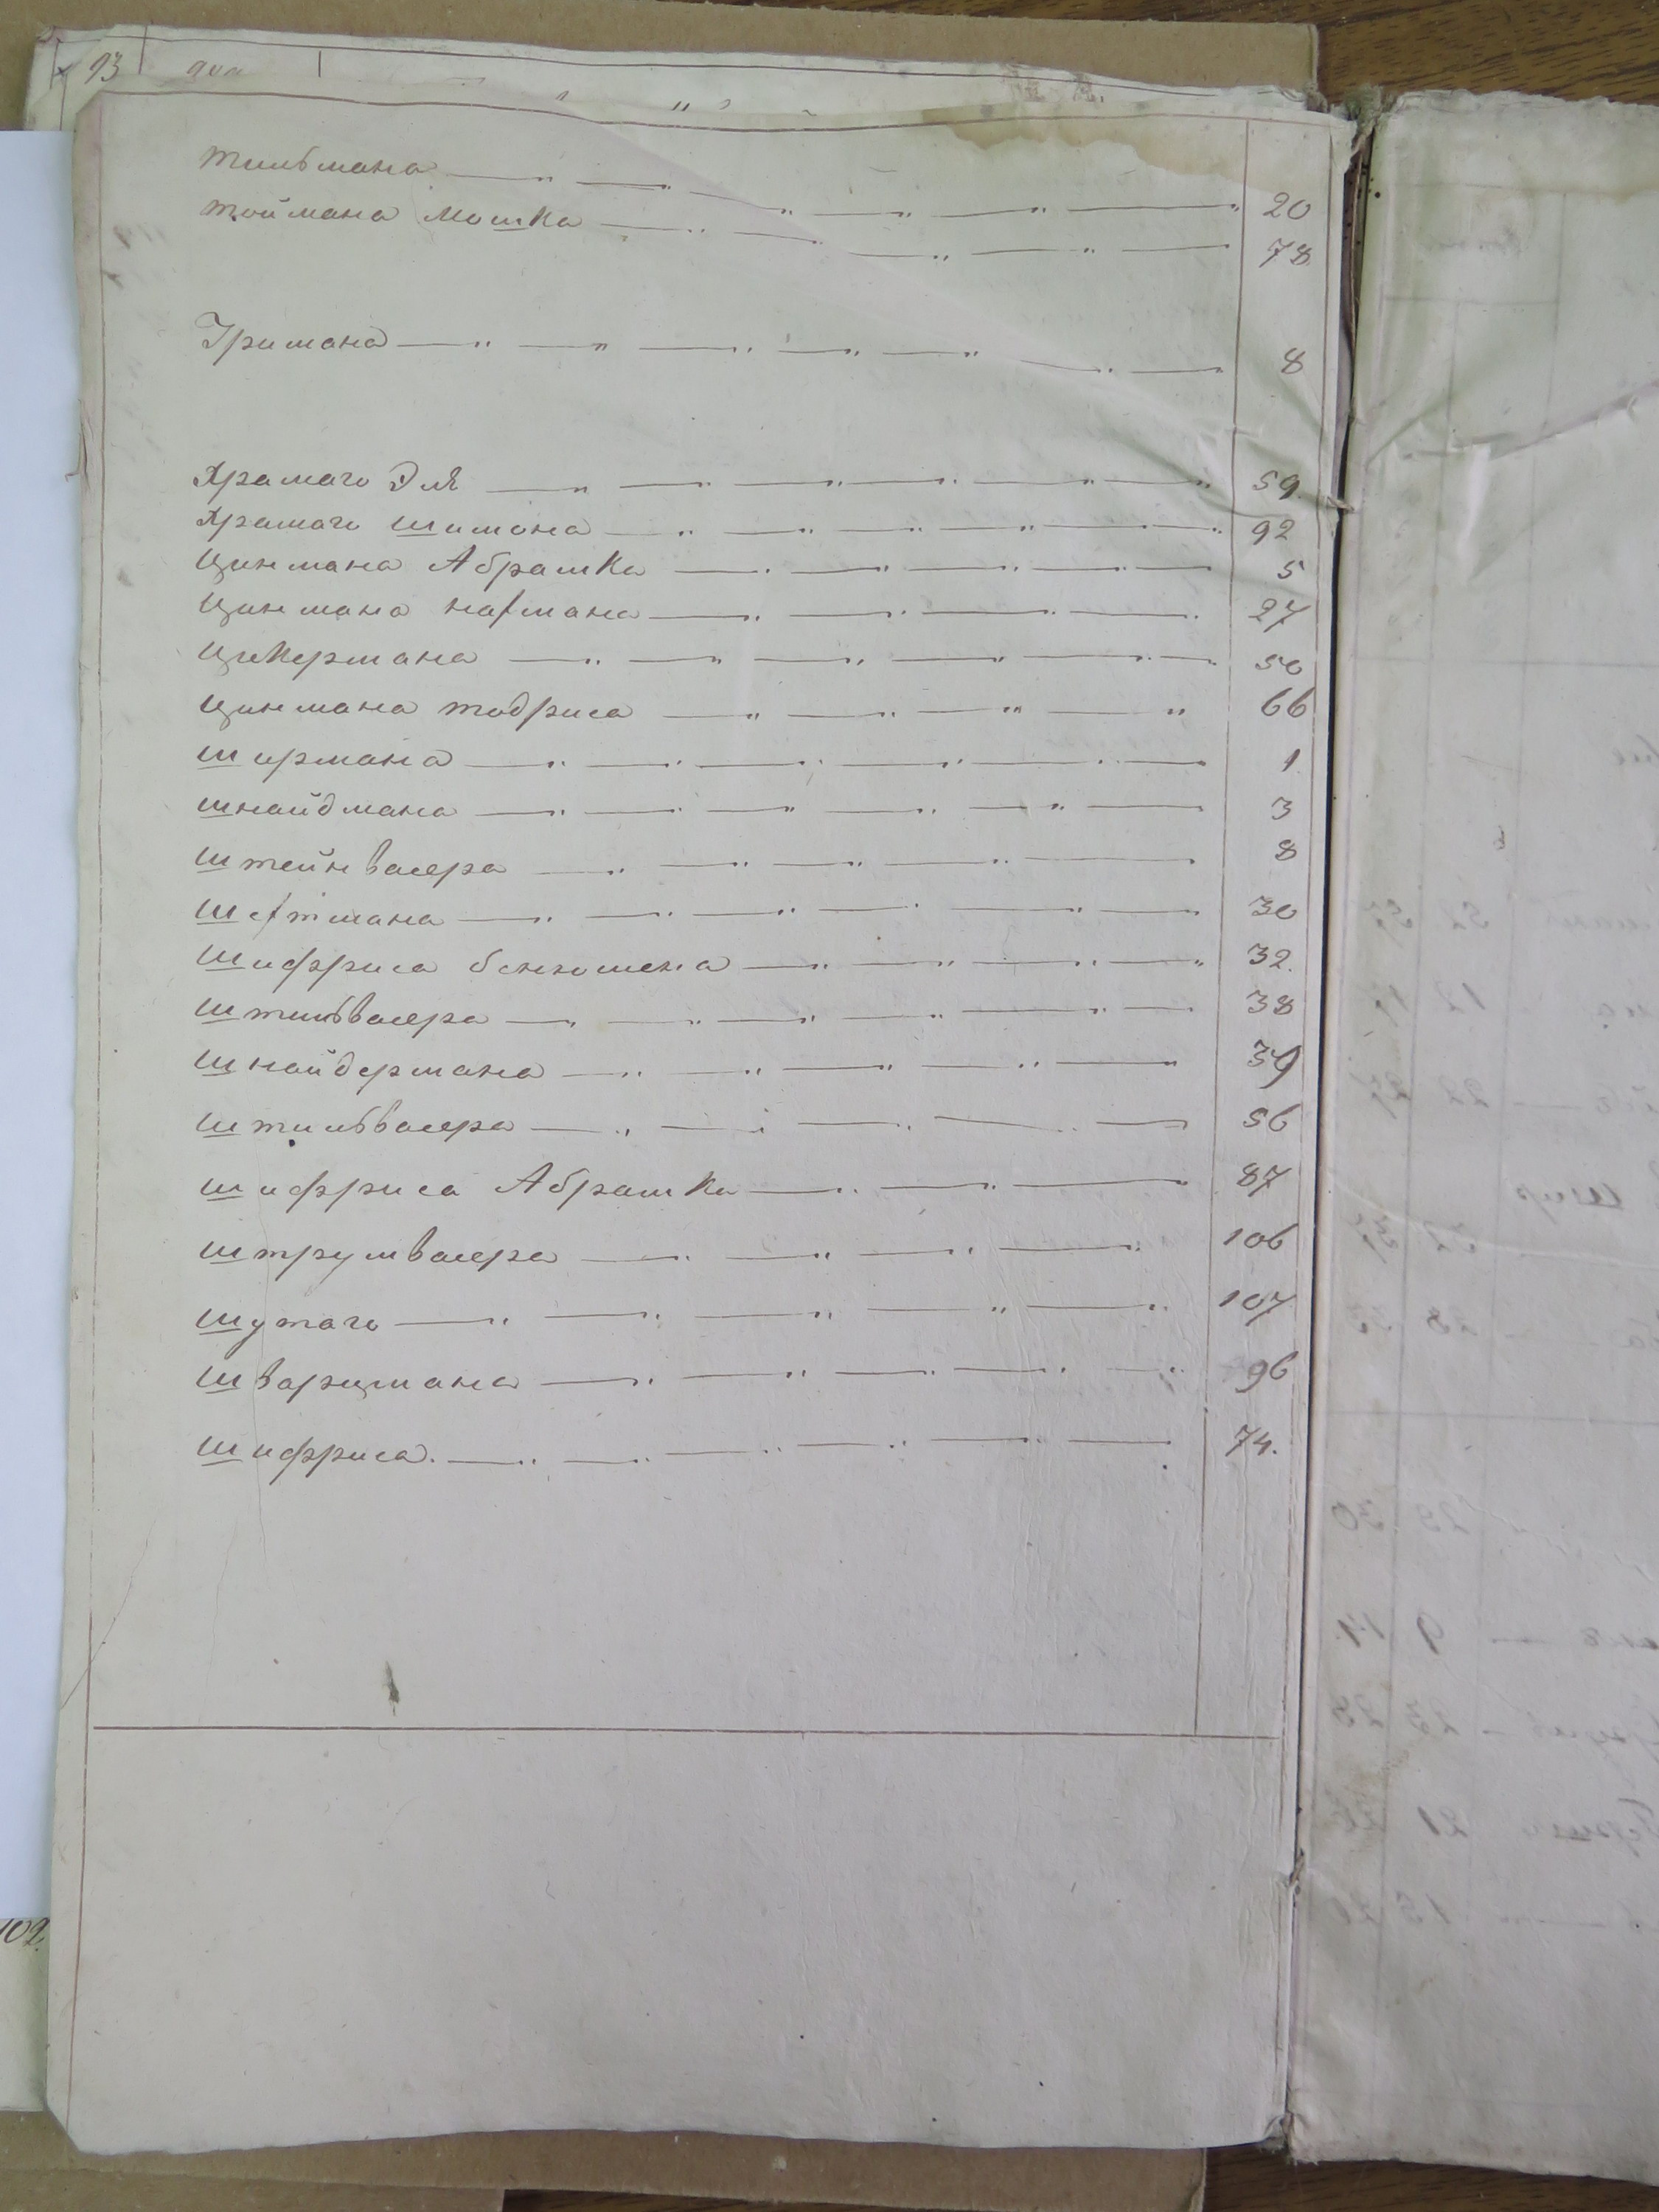 93
тильмана 20
тоймана Мошка 78
Уримана 8
Храмаго Эля 59.
Храмаго шимона 92
Цинмана Абрамка 5
Цинмана нахмана 27
Цукермана 50
Цинмана тодриса 66
ширмана 1
шнайдмана 3
штейнвасера 8
шехтмана 30
шифриса бенюмена 32.
штильвасера 38
шнайдермана 39
штильвасера 56
шифриса Абрамка 87
штрумвасера 106
шутаго 107
шварцмана 96
шифриса. 74.
102.